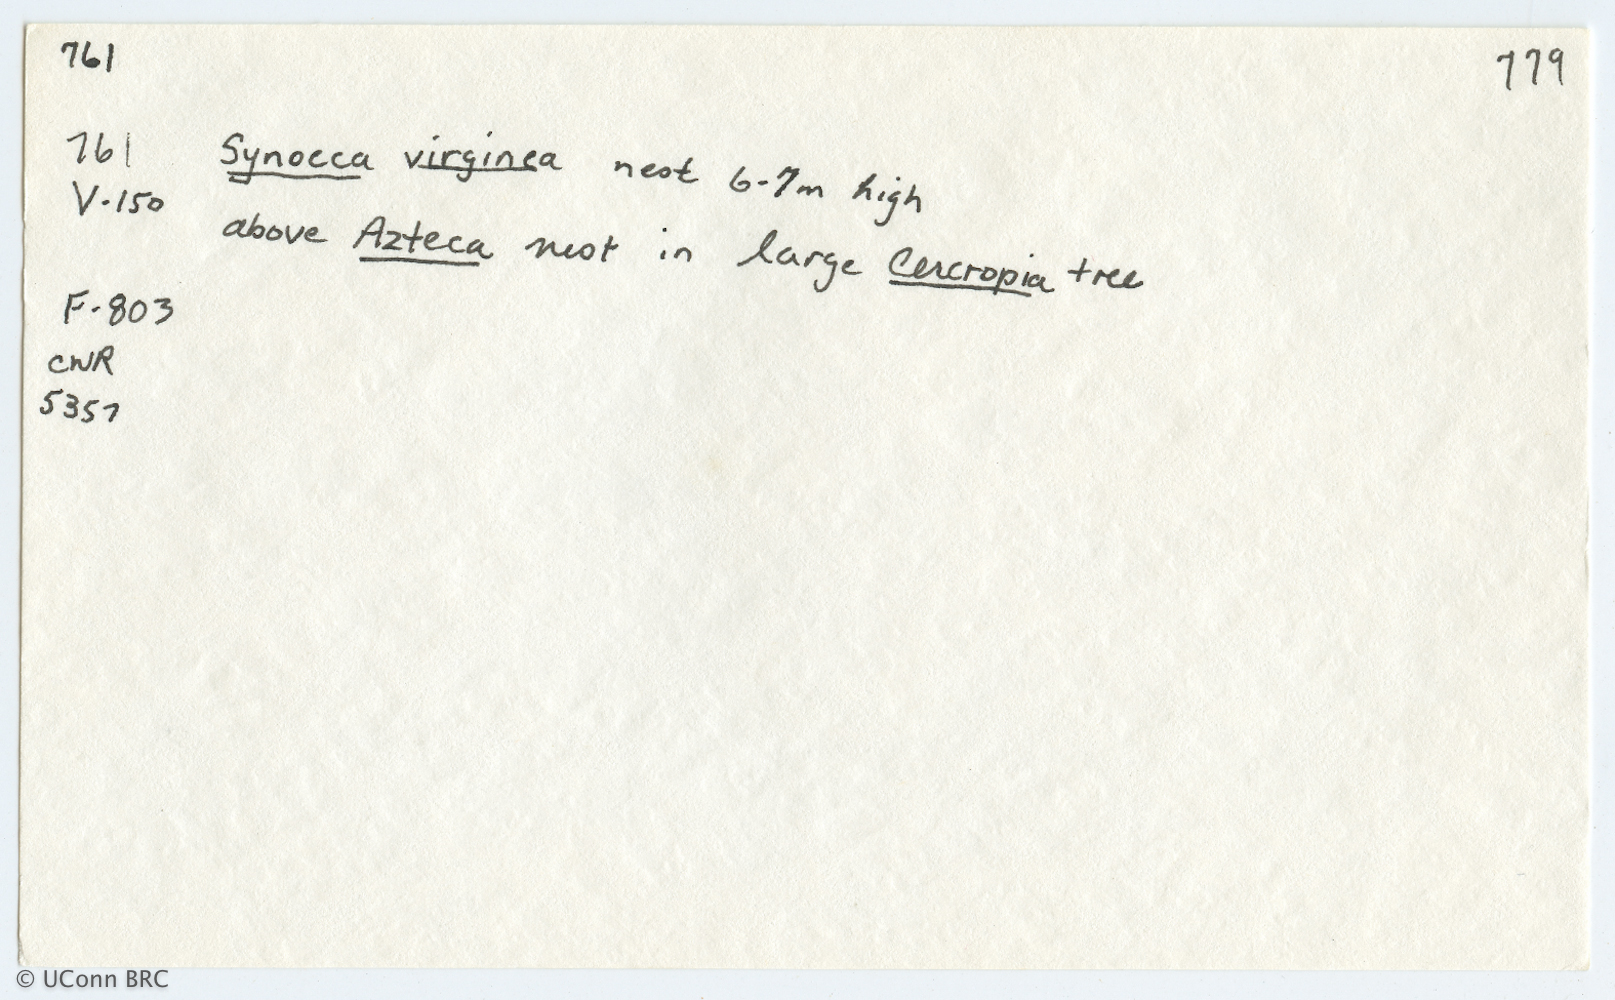 761
779
761 Synoeca virginea nest 6-7m high
V-150
above Azteca nest in large Cercropia tree
F-803
CWR
5357
© UConn BRC